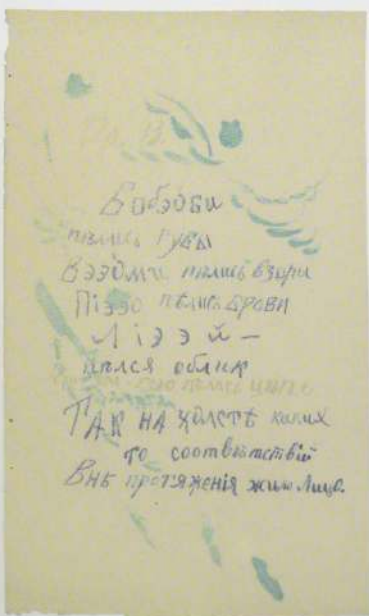 Бобэоби
пелись губы
Вээоми пелись взоры
Піээо пелись брови
Лiэээй —
пѣлся облик
пелась цепь
ТАК НА ХОЛСТѢ каких
то соотвѣтствій
Внѣ протяженія жило Лицо.